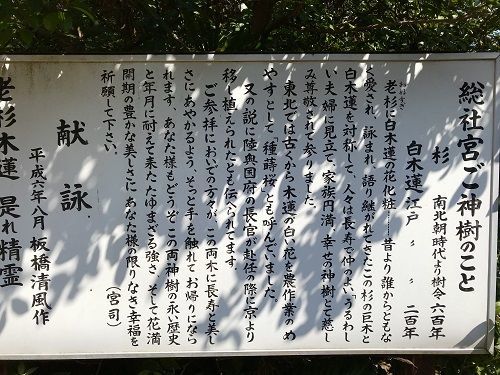 総社宮ご神樹のこと
杉 南北朝時代より樹令六百年
白木蓮 江戸 〃 〃 二百年
老杉に白木蓮の花化粧……昔より誰からともな
く愛され、詠まれ、語り継がれてきたこの杉の巨木と
白木蓮を対称して、人々は長寿で仲のよい、うるわし
い夫婦に見立て、家族円満、幸せの神樹とて慈し
み尊敬されて参りました。
東北では古くから木蓮の白い花を農作業のめ
やすとして、種蒔桜とも呼んでいました。
又の説に陸奥国府の長官が赴任の際に京より
移し植えられたとも伝へられてます。
ご参拝においての方々が、この両木に長寿と美し
さにあやかるよう、そっと手を触れてお帰りになら
れます。あなた様もどうぞこの両神樹の永い歴史
と年月に耐えて来たたゆまざる強さ、そして花満
開期の豊かな美しさに、あなた様の限りなき幸福を
祈願して下さい。
（宮司）
献詠
平成六年八月 板橋清風作
老杉木蓮 是れ精霊